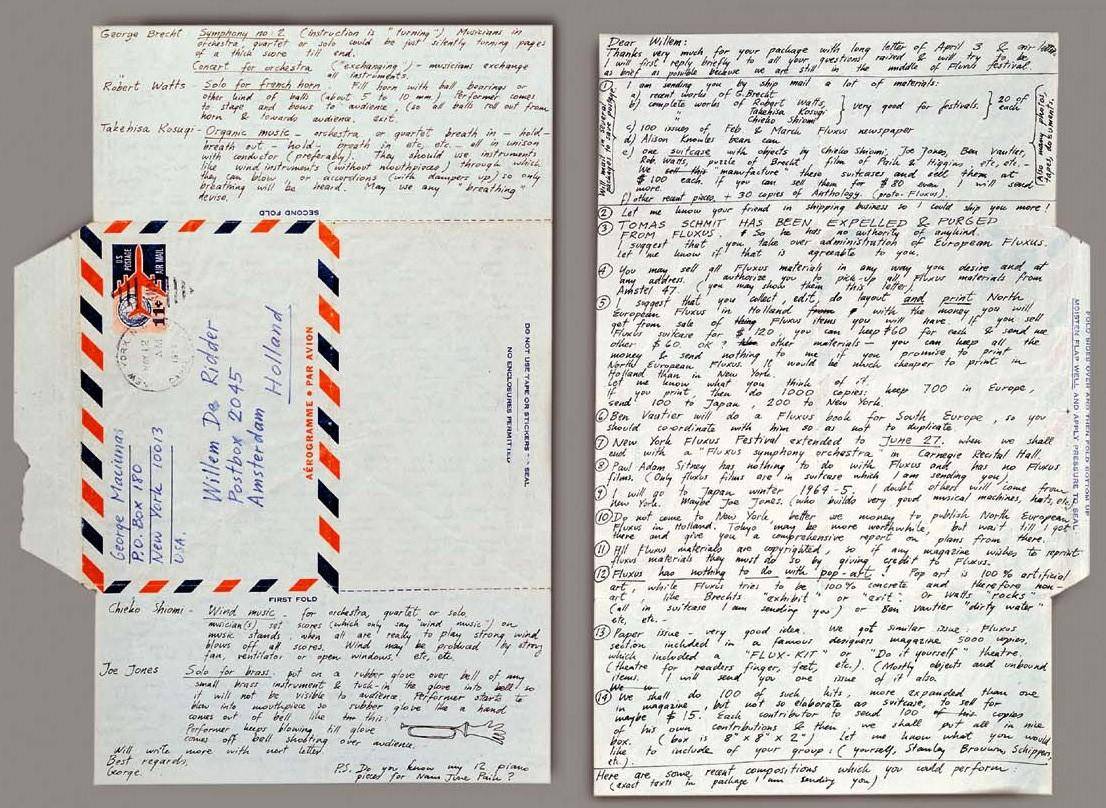 George Brecht Symphony no: 2 (instruction is "turning") Musicians in
orchestra, quartet or solo could be just silently turning pages
of a thick score till end.
Concert for orchestra ("exchanging") - musicians exchange
all instruments.
Robert Watts - Solo for french horn. Fill horn with ball bearings or
other kind of balls (about 5 to 10 mm). Performer comes
to stage and bows to audience. (so all balls roll out from
horn & towards audience. exit.
Takehisa Kosugi - Organic music - orchestra, or quartet breath in - hold -
breath out - hold - breath in etc, etc. - all in unison
with conductor (preferably). They should use instruments
like wind instruments (without mouthpieces) through which
they can blow or accordions (with dampers up) so only
breathing will be heard. May use any "breathing"
devise.
SECOND FOLD
U.S. POSTAGE
AIR MAIL
11¢
NEW YORK
AM
George Maciunas
P.O. Box 180
New York 10013
USA.
Willem De Ridder
Postbox 2045
Amsterdam
Holland
AÉROGRAMME • PAR AVION
NO ENCLOSURES PERMITTED
DO NOT USE TAPE OR STICKERS TO SEAL
FIRST FOLD
Chieko Shiomi - Wind music for orchestra, quartet or solo.
musician(s) set scores (which only say "wind music") on
music stands. when all are ready to play strong wind
blows off all scores. Wind may be produced by strong
fan, ventilator or open windows, etc, etc.
Joe Jones Solo for brass: put on a rubber glove over bell of any
small brass instrument & tuck-in the glove into bell so
it will not be visible to audience. Performer starts to
blow into mouthpiece so rubber glove like a hand
comes out of bell like this:
Performer keeps blowing till glove
comes off bell shooting over audience.
Will write more with next letter.
Best regards,
George.
P.S. Do you know my 12 piano
pieces for Nam June Paik?
Dear Willem:
Thanks very much for your package with long letter of April 3 & air letter,
I will first reply briefly to all your questions raised & will try to be
as brief as possible because we are still in the middle of Fluxus festival.
① I am sending you by ship mail a lot of materials:
a) recent works of G. Brecht
b) complete works of Robert Watts,
Takehisa Kosugi
" Chieko Shiomi
very good for festivals.
20 of each
c) 100 issues of Feb. & March Fluxus newspaper
d) Alison Knowles bean can
e) one suitcase with objects by Chieko Shiomi, Joe Jones, Ben Vautier,
Rob. Watts, puzzle of Brecht, film of Paik & Higgins etc, etc. -
We sell this "manufacture" these suitcases and sell them at
$100 each. if you can sell them for $80 even I will send
more.
f) other recent pieces, + 30 copies of Anthology. (proto-Fluxus).
Will mail in several packages to save postage
Also many photos, tapes, documents.
② Let me know your friend in shipping business so I could ship you more!
③ TOMAS SCHMIT HAS BEEN EXPELLED & PURGED
FROM FLUXUS. So he has no authority of anykind.
I suggest that you take over administration of European Fluxus.
Let me know if that is agreeable to you.
④ You may sell all Fluxus materials in any way you desire and at
any address. I authorize you to pick-up all Fluxus materials from
Amstel 47. (you may show them this letter).
⑤ I suggest that you collect, edit, do layout and print North
European Fluxus in Holland with the money you will
get from sale of Fluxus items you will have. If you sell
Fluxus suitcase for $120 you can keep $60 for each & send me
other $60. ok? other materials - you can keep all the
money & send nothing to me if you promise to print
North European Fluxus. It would be much cheaper print in
Holland than in New York.
Let me know what you think of it.
If you print then do 1000 copies: keep 700 in Europe,
send 100 to Japan, 200 to New York.
⑥ Ben Vautier will do a Fluxus book for South Europe, so you
should co-ordinate with him so as not to duplicate.
⑦ New York Fluxus Festival extended to June 27. when we shall
end with a "Fluxus symphony orchestra" in Carnegie Recital Hall.
⑧ Paul Adam Sitney has nothing to do with Fluxus and has no Fluxus
films. (Only fluxus films are in suitcase which I am sending you).
⑨ I will go to Japan winter 1964-5. I doubt others will come from
New York. Maybe Joe Jones. (who builds very good musical machines, hats, etc.
⑩ Do not come to New York. better we money to publish North European
Fluxus in Holland. Tokyo may be more worthwhile, but wait till I get
there and give you a comprehensive report on plans from there.
⑪ All Fluxus materials are copyrighted, so if any magazine wishes to reprint
fluxus materials they must do so by giving credit to Fluxus.
⑫ Fluxus has nothing to do with pop-art! Pop art is 100% artificial
art, while Fluxus tries to be 100% concrete and therefore non-
art, like Brechts "exhibit" or "exit". Or Watts "rocks"
(all in suitcase I am sending you) or Ben Vautier "dirty water"
etc, etc. -
⑬ Paper issue - very good idea. We got similar issue: Fluxus
section included in a famous designers magazine 5000 copies,
which included a "FLUX-KIT" or "Do it yourself" theatre.
(theatre for readers finger, feet, etc.). (Mostly objects and unbound
items. I will send you one issue of it also.
⑭ We shall do 100 of such kits, more expanded than one
in magazine, but not so elaborate as suitcase, to sell for
maybe $15. Each contributor to send 100 copies
of his own contributions & then we shall put all in nice
box. (box is 8" x 8" x 2") Let me know what you would
like to include of your group: (yourself, Stanley Brouwn, Schippers,
etc.)
Here are some recent compositions which you could perform:
(exact texts in package I am sending you)
MOISTEN FLAP WELL AND APPLY PRESSURE TO SEAL